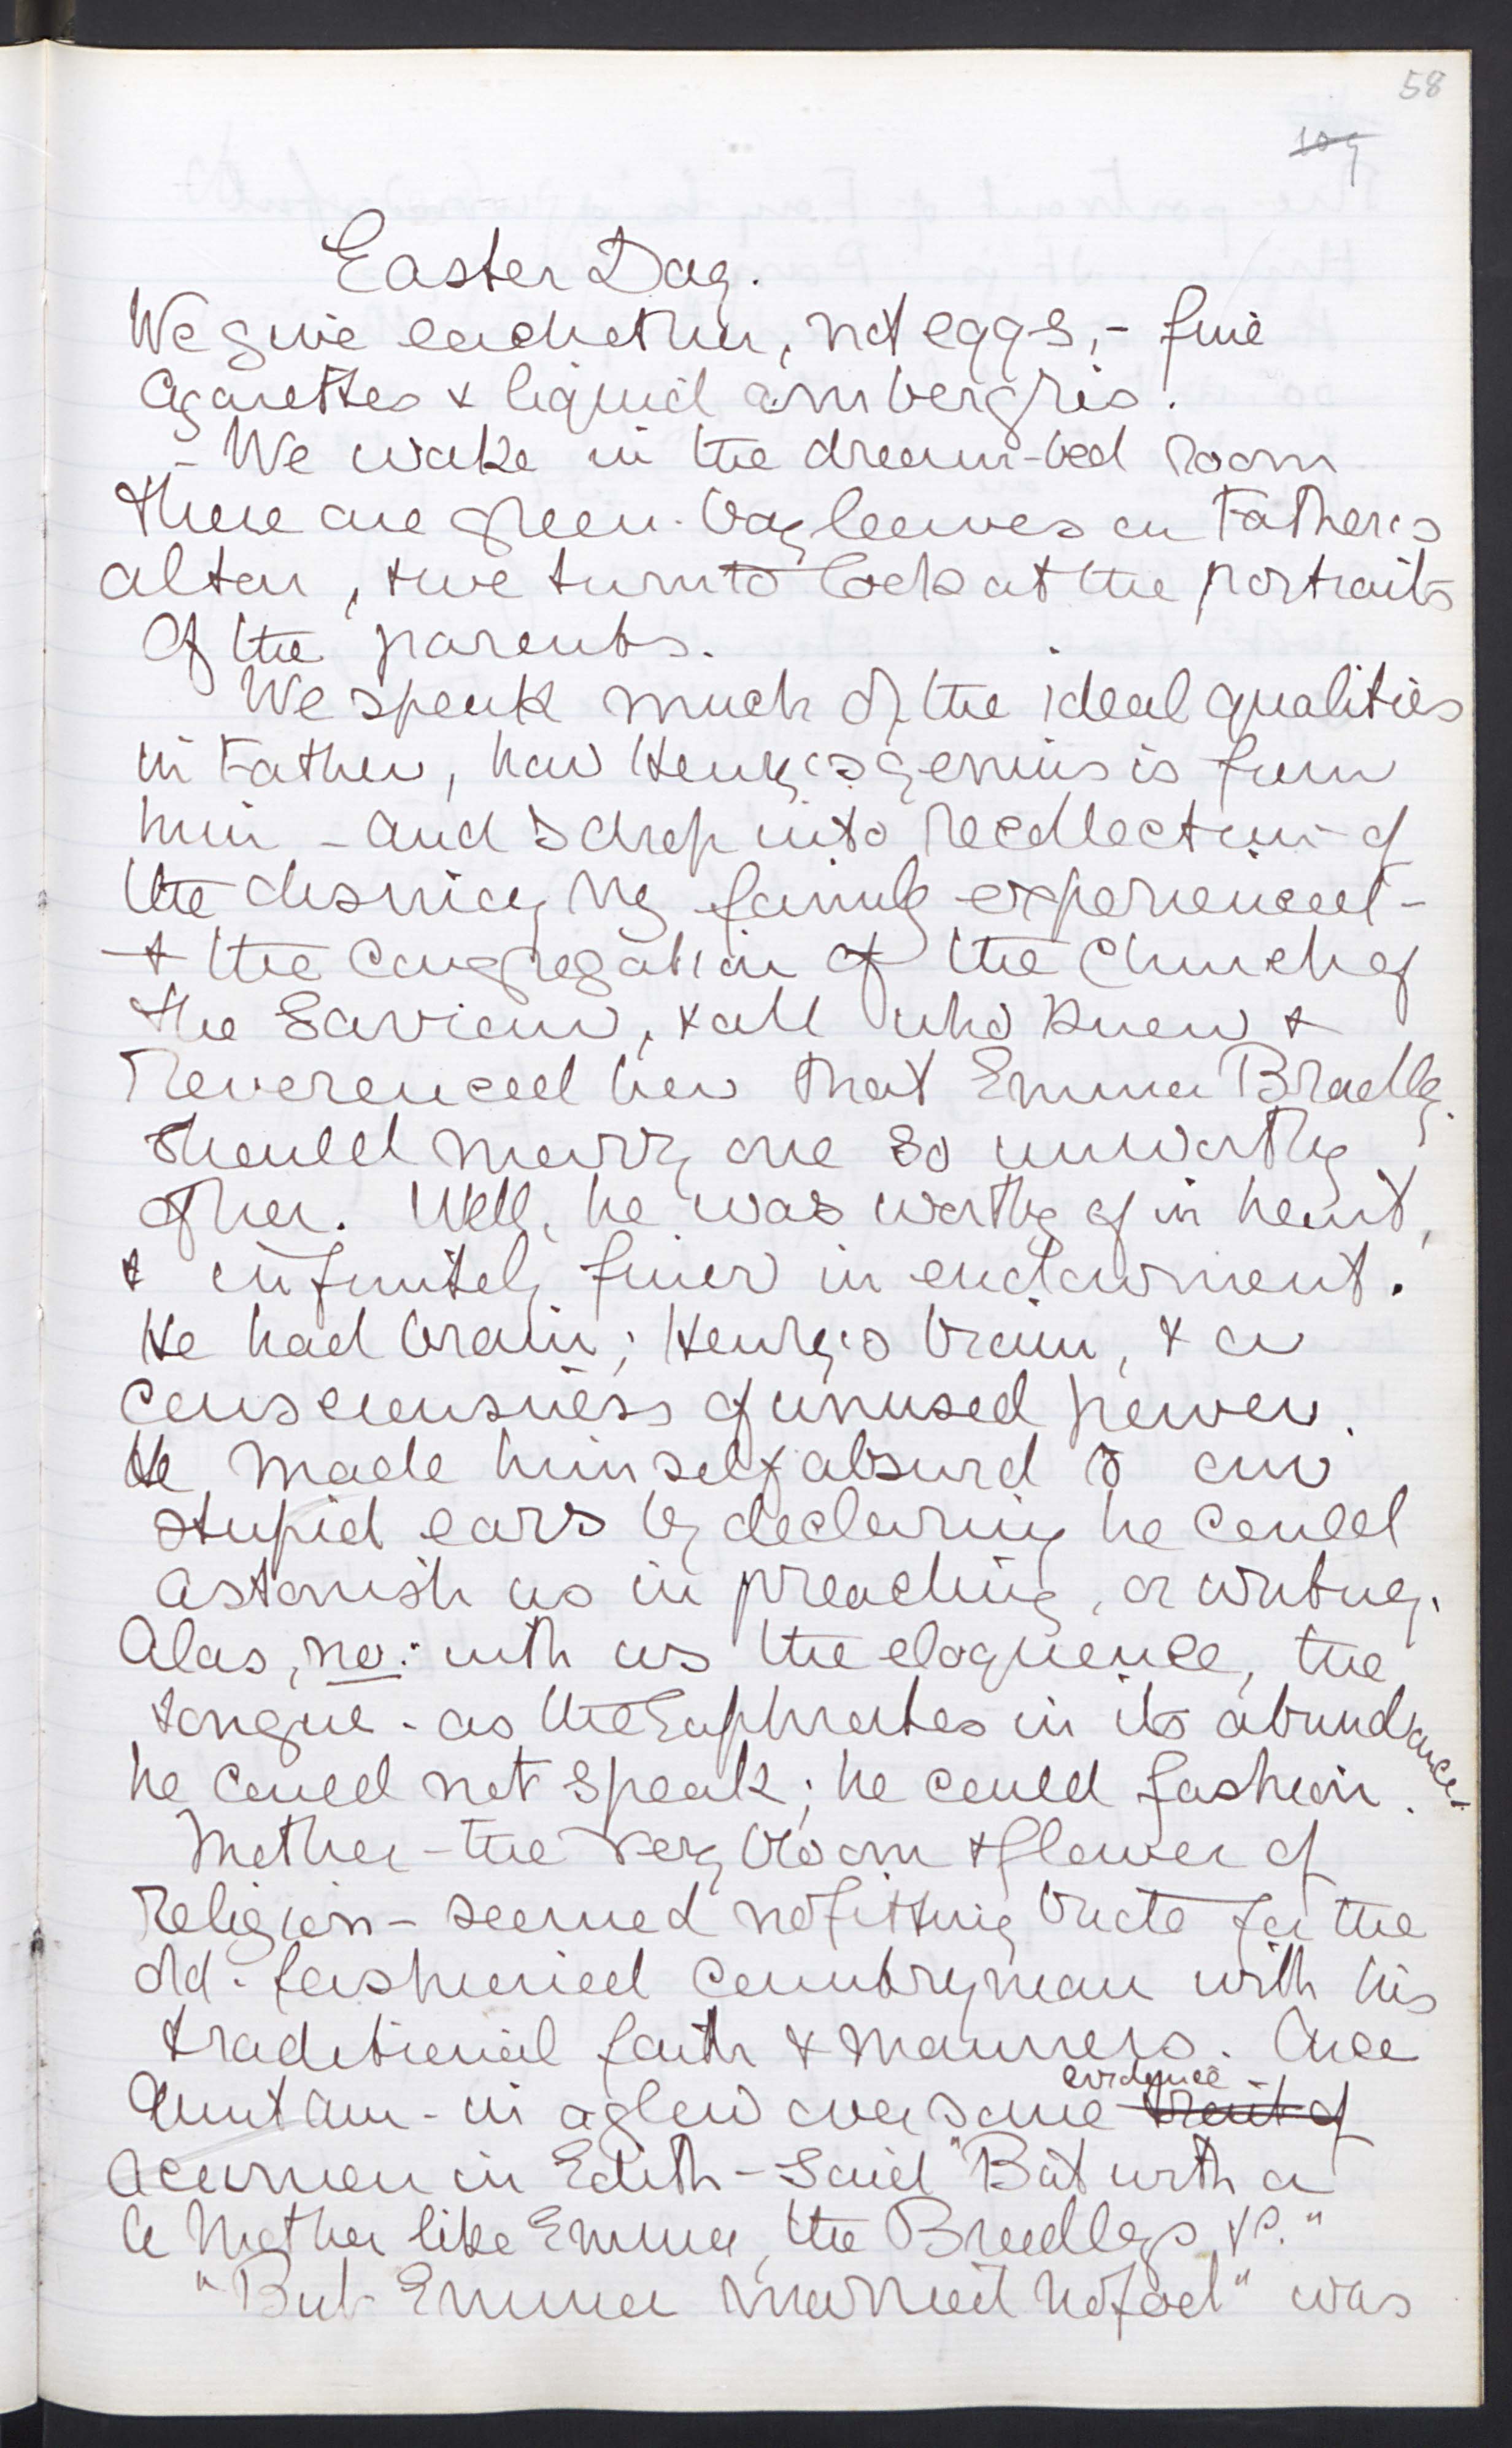 58
109
Easter Day.
We give each other, not eggs, - fine
cigarettes & liquid ambergris.
- We wake in the dream-bed room
there are green bay leaves on Father's
altar, & we turn to look at the portraits
of the parents.
We speak much of the ideal qualities
in Father, how Henry's genius is from
him - and I drop into recollection of
the dismay my family experienced -
& the congregation of the Church of
the Saviour, & all who knew &
reverenced her that Emma Bradley
should marry one so unworthy
of her. Well, he was worthy of in heart,
& infinitely finer in endowment.
He had brain; Henry's brain, & a
consciousness of unused power.
He made himself absurd to our
stupid ears by declaring he could
astonish us in preaching, or writing.
Alas, no: with us the eloquence, the
tongue - as the Euphrates in its abundance.
he could not speak; he could fashion.
Mother - the very bloom & flower of
religion - seemed no fitting bride for the
old-fashioned countryman with his
traditional faith & manners. Once
Aunt Ann - in a glow over some evidence trait of
acumen in Edith - said "But with a
a Mother like Emma, the Bradleys, &c."
"But Emma married no fool" was